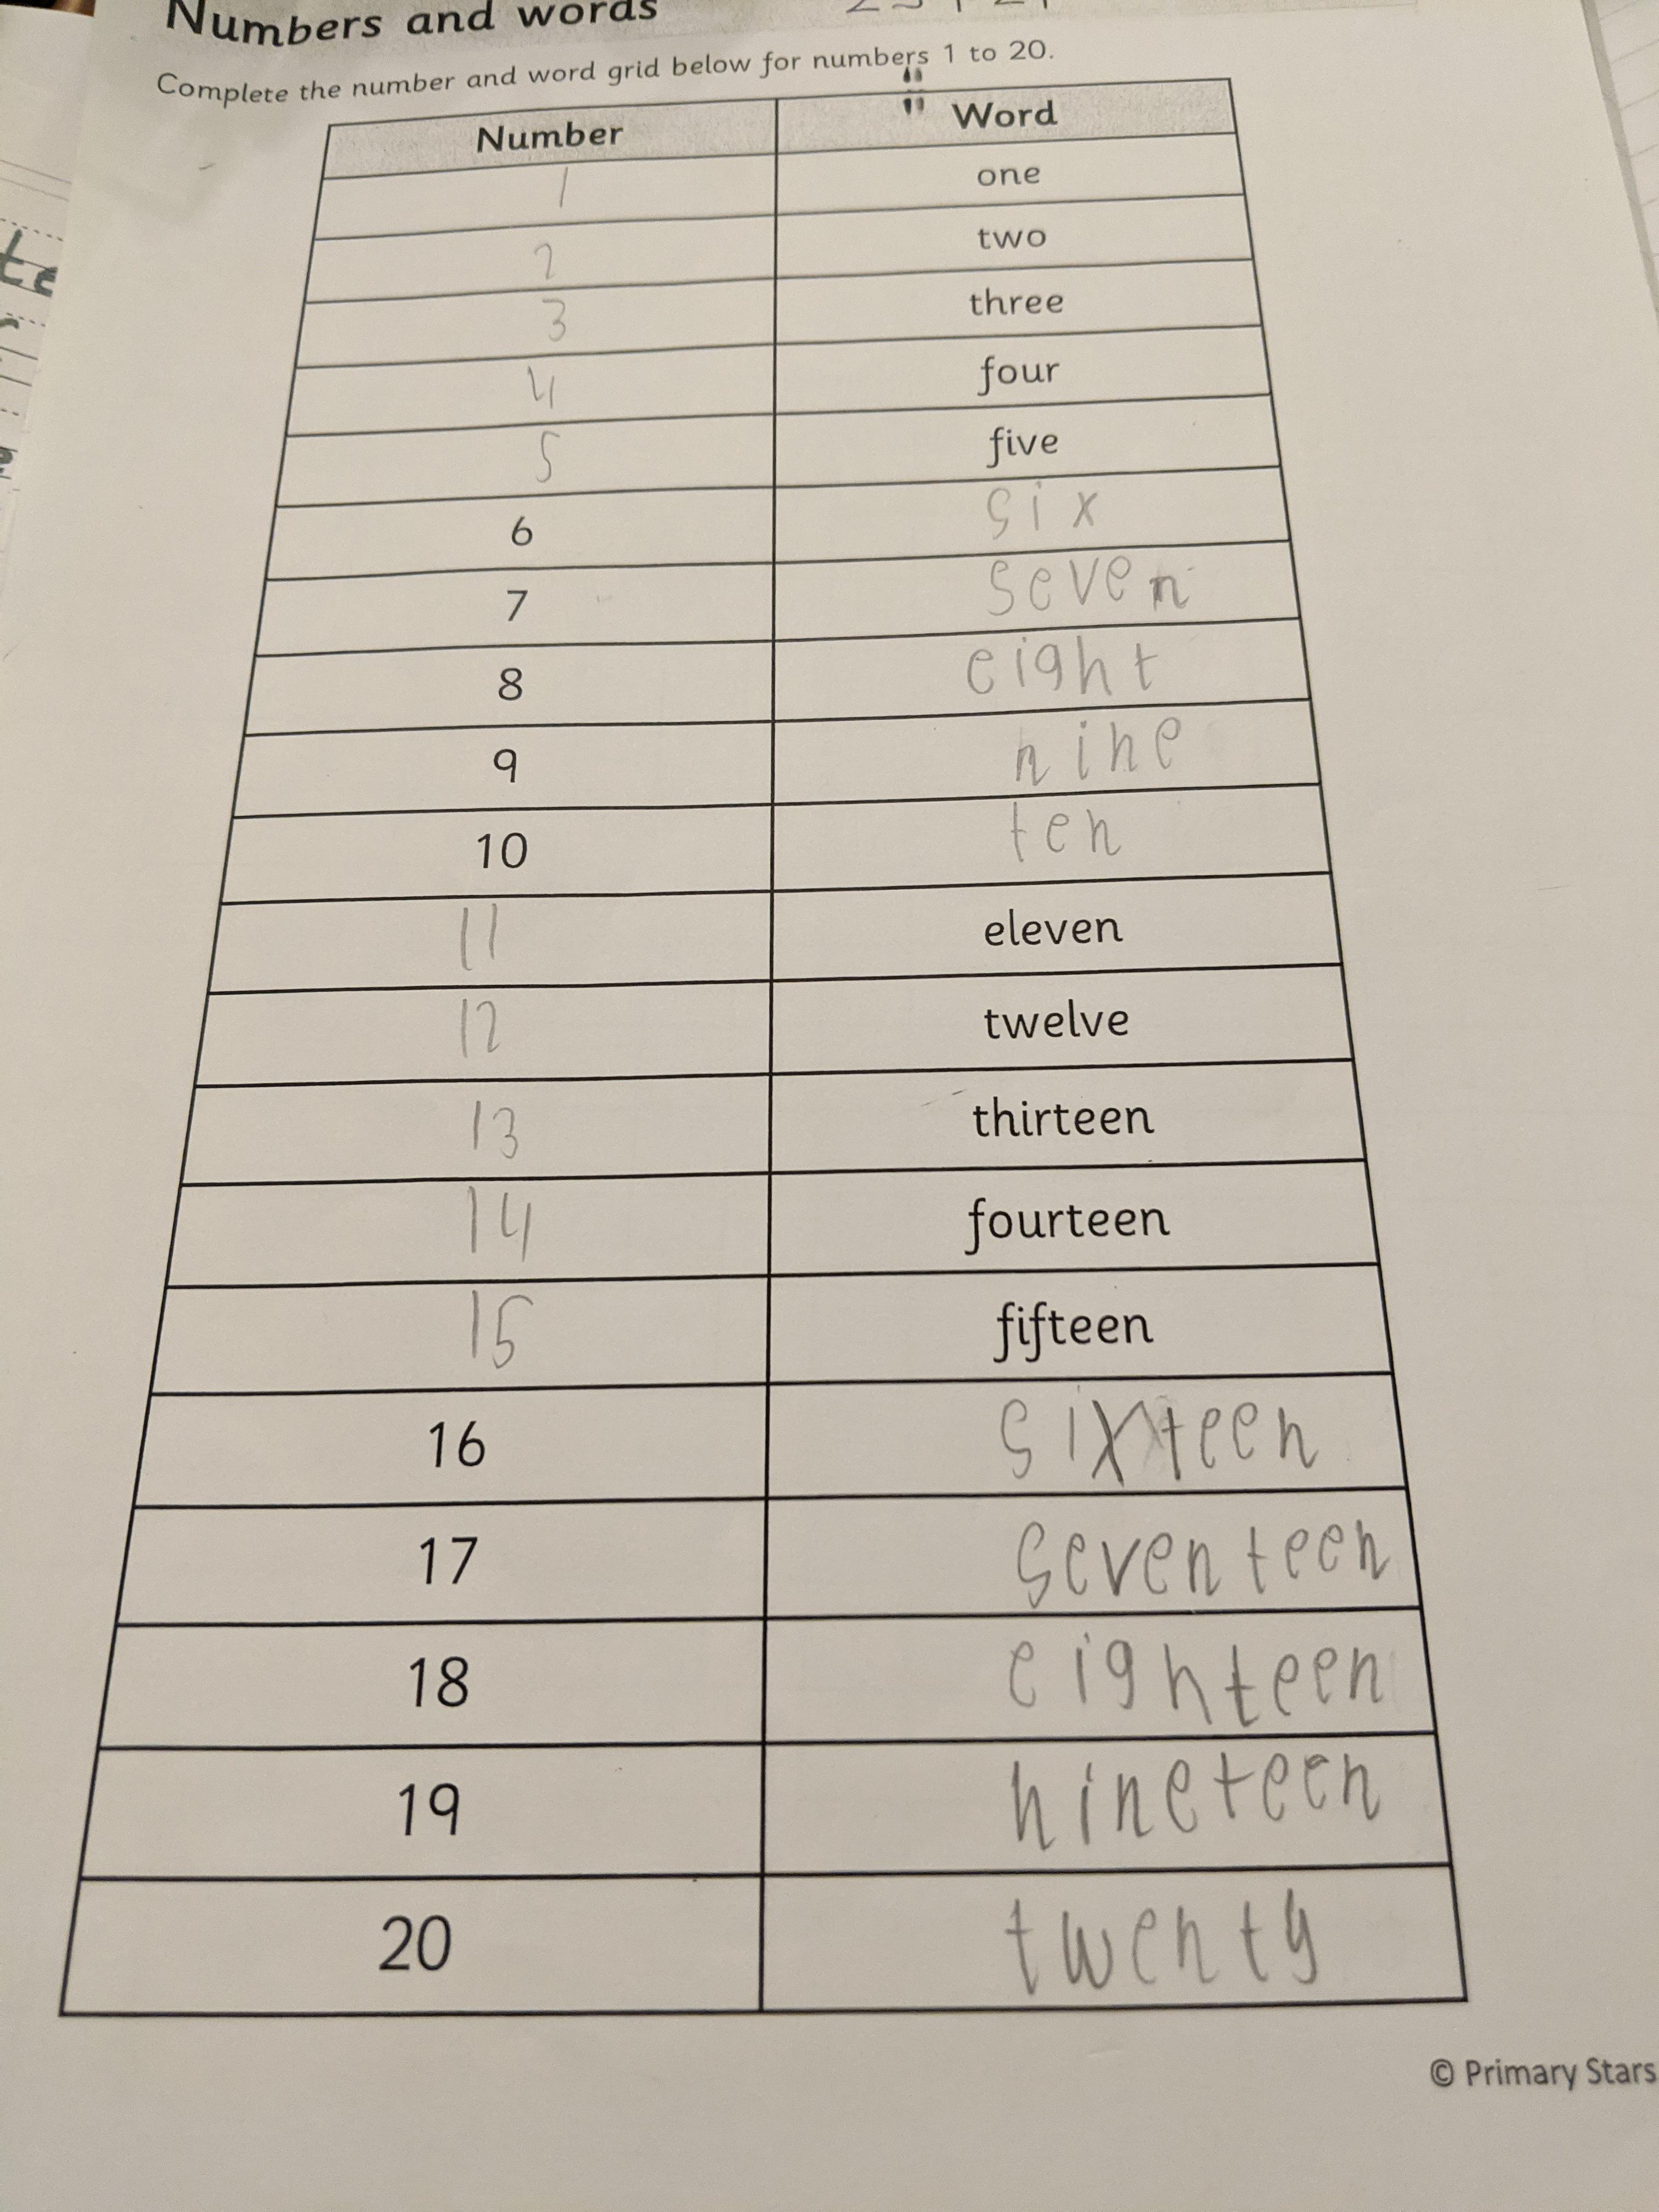 Numbers and words
Complete the number and word grid below for numbers 1 to 20.
Number Word
1 one
2 two
3 three
4 four
5 five
6 six
7 seven
8 eight
9 nine
10 ten
11 eleven
12 twelve
13 thirteen
14 fourteen
15 fifteen
16 sixteen
17 seventeen
18 eighteen
19 nineteen
20 twenty
© Primary Stars